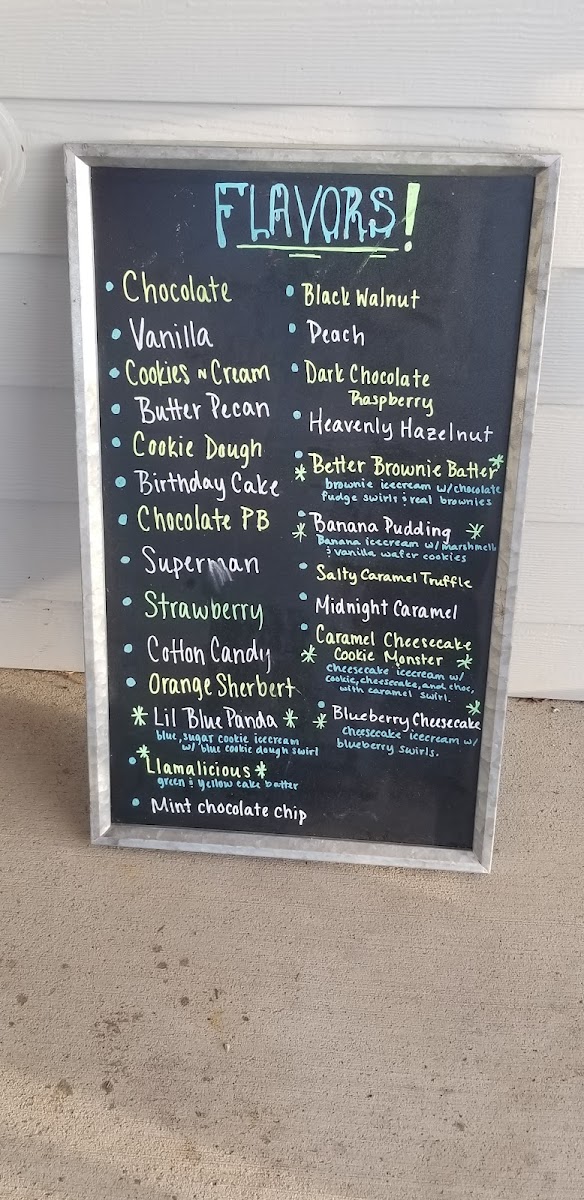 FLAVORS!
Chocolate
Vanilla
Cookies n Cream
Butter Pecan
Cookie Dough
Birthday Cake
Chocolate PB
Superman
Strawberry
Cotton Candy
Orange Sherbert
* Lil Blue Panda *
blue, sugar cookie icecream
w/ blue cookie dough swirl
* Llamalicious *
green & yellow cake batter
Mint chocolate chip
Black Walnut
Peach
Dark Chocolate
Raspberry
Heavenly Hazelnut
* Better Brownie Batter *
brownie icecream w/chocolate
fudge swirl & real brownies
* Banana Pudding *
Banana icecream w/ marshmell
& vanilla wafer cookies
Salty Caramel Truffle
Midnight Caramel
Caramel Cheesecake
* Cookie Monster *
cheesecake icecream w/
cookie, cheesecake, and choc,
with caramel swirl.
* Blueberry Cheesecake *
cheesecake icecream w/
blueberry swirls.